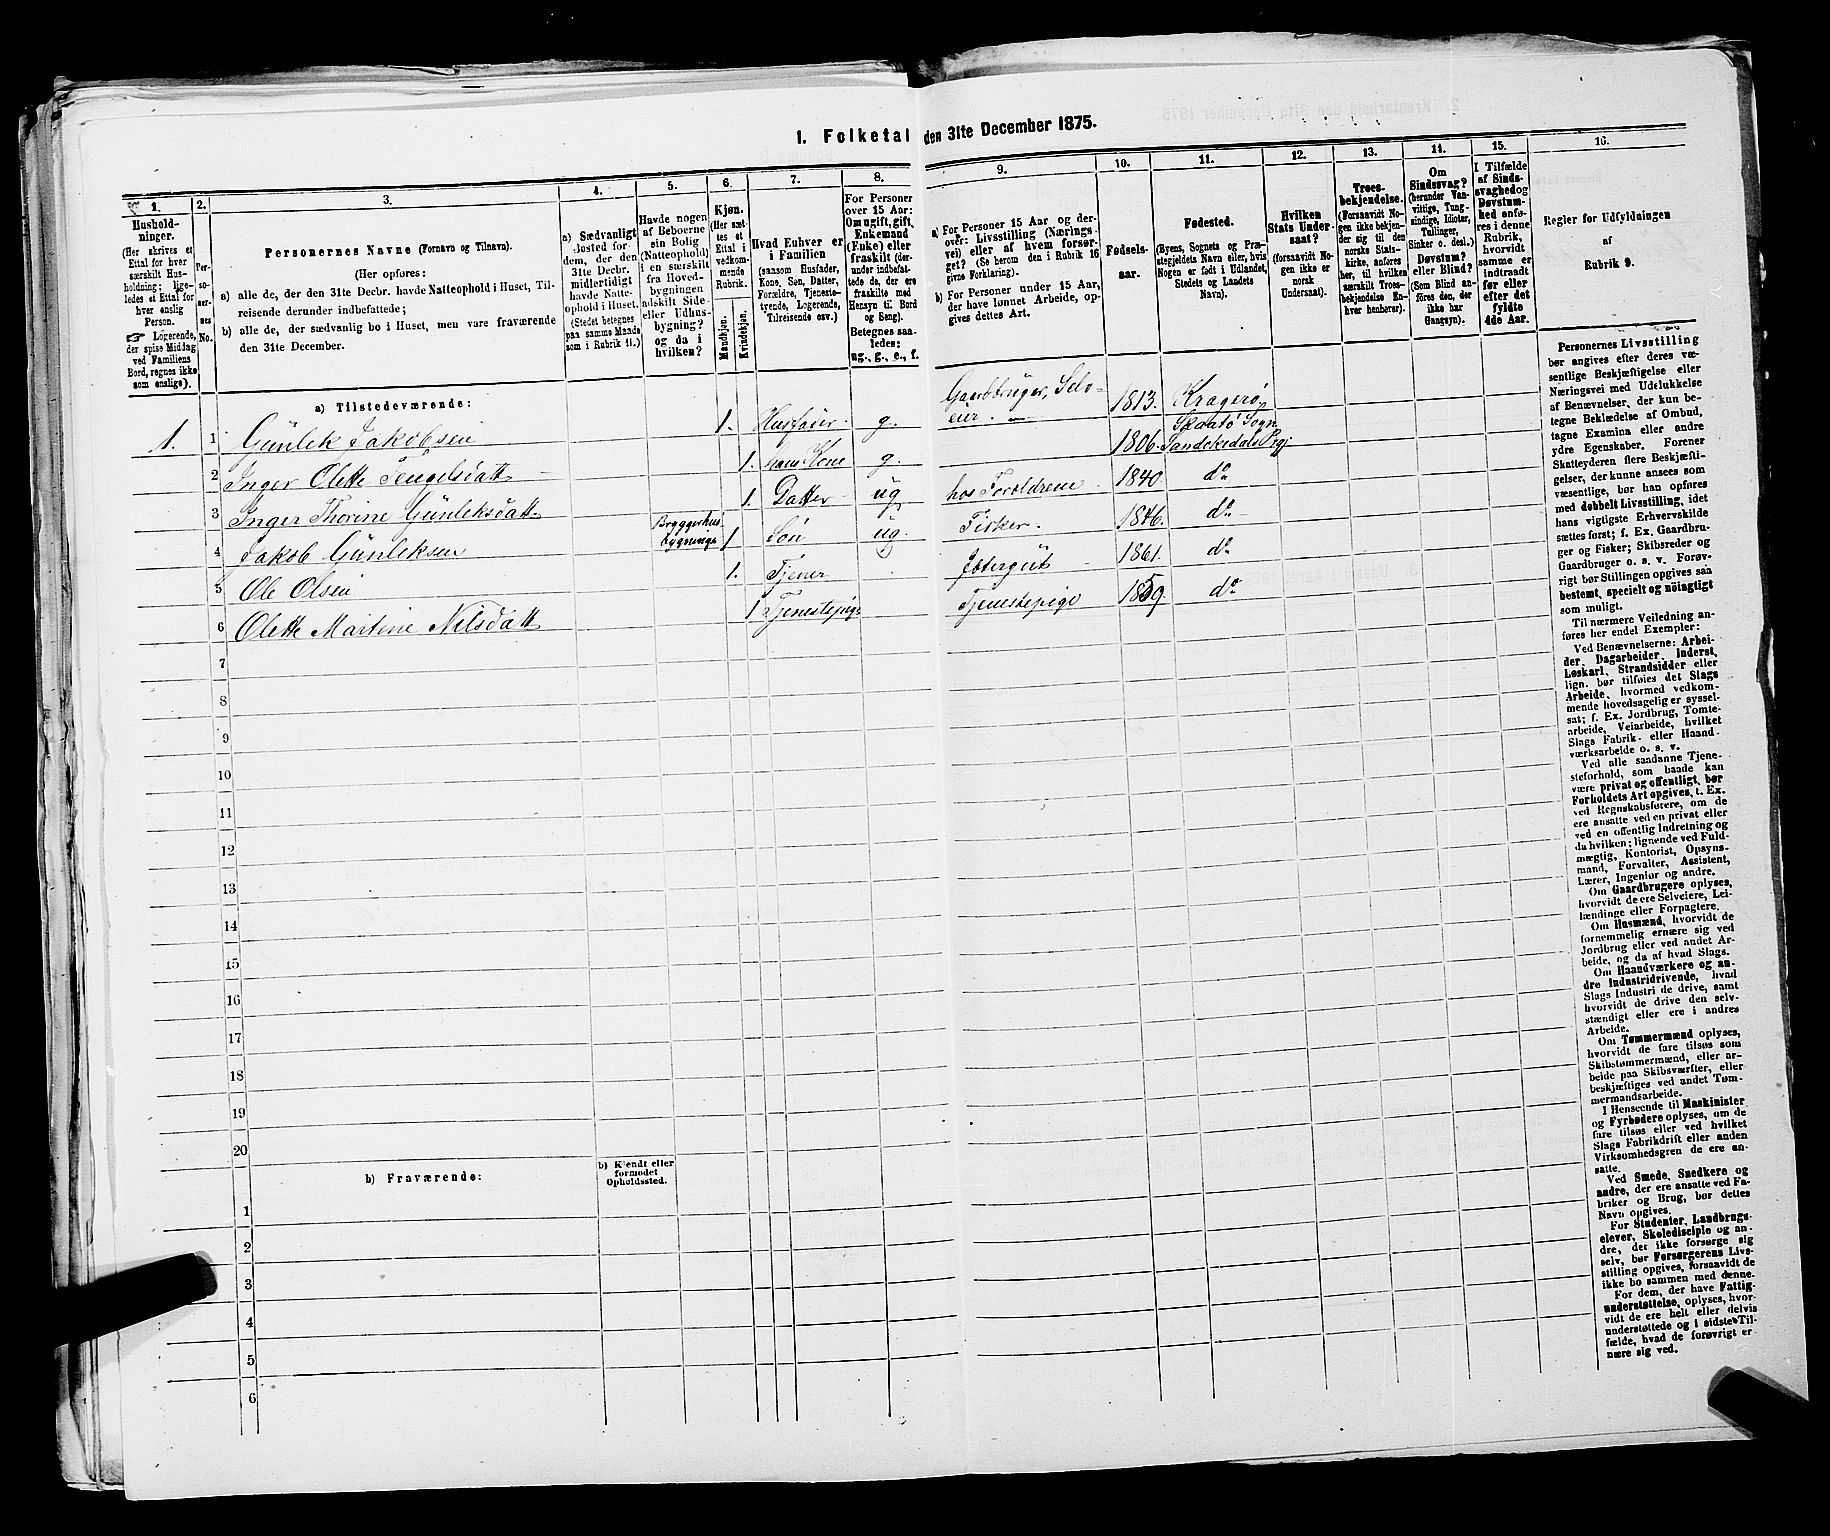 1. Folketal den 31te December 1875.
1.
Hushold-
ninger.
(Her skrives et
Ettal for hver
særskilt Hus-
holdning; lige-
ledes et Ettal for
hver enslig
Person.
☞ Logerende,
der spise Middag
ved Familiens
Bord, regnes ikke
som enslige).
2.
Per-
so-
ner-
nes
No.
3.
Personernes Navne (Fornavn og Tilnavn).
(Her opføres:
a) alle de, der den 31te Decbr. havde Natteophold i Huset, Til-
reisende derunder indbefattede;
b) alle de, der sædvanlig bo i Huset, men vare fraværende
den 31te December.
4.
a) Sædvanligt
Bosted for
dem, der den
31te Decbr.
midlertidigt
havde Natte-
ophold i Huset.
(Stedet betegnes
paa samme Maade
som i Rubrik 11.)
5.
Havde nogen
af Beboerne
sin Bolig
(Natteophold)
i en særskilt
fra Hoved-
bygningen
adskilt Side-
eller Udhus-
bygning?
og da i
hvilken?
6.
Kjøn.
(Her sæt-
tes et
Ettal i
vedkom-
mende
Rubrik.
Mandkjøn.
Kvindekjøn.
7.
Hvad Enhver er
i Familien
(saasom Husfader,
Kone, Søn, Datter,
Forældre, Tjeneste-
tyende, Logerende,
Tilreisende osv.)
8.
For Personer
over 15 Aar:
Om ugift, gift,
Enkemand
(Enke) eller
fraskilt (der-
under indbefat-
tede de, der ere
fraskilte med
Hensyn til Bord
og Seng).
Betegnes saa-
ledes:
ug., g., e., f.
9.
a) For Personer 15 Aar og der-
over: Livsstilling (Nærings-
vei) eller af hvem forsør-
get? (Se herom den i Rubrik 16
givne Forklaring).
b) For Personer under 15 Aar,
der have lønnet Arbeide, op-
gives dettes Art.
10.
Fødsels-
aar.
11.
Fødested.
(Byens, Sognets og Præ-
stegjeldets Navn eller, hvis
Nogen er født i Udlandet,
Stedets og Landets
Navn).
12.
Hvilken
Stats Under-
saat?
(forsaavidt No-
gen ikke er
norsk
Undersaat).
13.
Troes-
bekjendelse.
(Forsaavidt No-
gen ikke bekjen-
der sig til den
norske Stats-
kirke, anføres
her, til hvilken
særskilt Troes-
bekjendelse En-
hver henhører).
14.
Om
Sindssvag?
(herunder Van-
vittige, Tung-
sindige, Idioter,
Tullinger,
Sinker o. desl.)
Døvstum?
eller Blind?
(Som Blind an-
føres den, der
ikke har
Gangsyn).
15.
I Tilfælde
af Sinds-
svaghed og
Døvstum-
hed anfø-
res i denne
Rubrik,
hvorvidt
samme er
indtraadt
før eller
efter det
fyldte
4de Aar.
16.
Regler for Udfyldningen
af
Rubrik 9.
a) Tilstedeværende:
1. 1 Günlek Jakobsen 1. Husfader g. Gaardbruger, Selv-
eier. 1813. Kragerø
2 Inger Olette Tengelsdatt 1. hans Kone g. 1806. Skaatø Sogn Sandøkedals Prgj
3 Inger Thorine Günleksdatt. 1. Datter ug hos Forældrene 1840. do
4 Jakob Günleksen Bryggerhus bygninge 1 Søn ug. Fisker. 1846. do
5 Ole Olsen 1. Tjener Jætergut 1861. do
6 Olette Martine Nelsdatt 1 Tjenestepige Tjenestepige 1859. do
7
8
9
10
11
12
13
14
15
16
17
18
19
20
b) Fraværende:
b) Kjendt eller
formodet
Opholdssted.
1
2
3
4
5
6
Personernes Livsstilling
bør angives efter deres væ-
sentlige Beskjæftigelse eller
Næringsvei med Udelukkelse
af Benævnelser, der kun be-
tegne Beklædelse af Ombud,
tagne Examina eller andre
ydre Egenskaber. Forener
Skatteyderen flere Beskjæfti-
gelser, der kunne ansees som
væsentlige, bør han opføres
med dobbelt Livsstilling, idet
hans vigtigste Erhvervskilde
sættes først; f. Ex. Gaardbru-
ger og Fisker; Skibsreder og
Gaardbruger o. s. v. Forøv-
rigt bør Stillingen opgives saa
bestemt, specielt og nöiagtigt
som muligt.
Til nærmere Veiledning an-
føres her endel Exempler:
Ved Benævnelserne: Arbei-
der, Dagarbeider, Inderst,
Løskarl, Strandsidder eller
lign. bør tilføies det Slags
Arbeide, hvormed vedkom-
mende hovedsagelig er syssel-
sat; f. Ex. Jordbrug, Tomte-
arbeide, Veiarbeide, hvilket
Slags Fabrik- eller Haand-
værksarbeide o. s. v.
Ved alle saadanne Tjene-
steforhold, som baade kan
være privat og offentligt, bør
Forholdets Art opgives, t. Ex.
ved Regnskabsførere, om de
ere ansatte ved en privat eller
ved en offentlig Indretning og
da hvilken; lignende ved Fuld-
mægtig, Kontorist, Opsyns-
mand, Forvalter, Assistent,
Lærer, Ingeniør og andre.
Om Gaardbrugere oplyses,
hvorvidt de ere Selveiere, Lei-
lændinge eller Forpagtere.
Om Husmænd, hvorvidt de
fornemmelig ernære sig ved
Jordbrug eller ved andet Ar-
beide, og da af hvad Slags.
Om Haandværkere og an-
dre Industridrivende, hvad
Slags Industri de drive, samt
hvorvidt de drive den selv-
stændigt eller ere i andres
Arbeide.
Om Tømmermænd oplyses,
hvorvidt de fare tilsøs som
Skibstømmermænd, eller ar-
beide paa Skibsværfter, eller
beskjæftiges ved andet Tøm-
mermandsarbeide.
I Henseende til Maskinister
og Fyrbødere oplyses, om de
fare tilsøs eller ved hvilket
Slags Fabrikdrift eller anden
Virksomhedsgren de ere an-
satte.
Ved Smede, Snedkere og
andre, der ere ansatte ved Fa-
briker og Brug, bør dettes
Navn opgives.
For Studenter, Landbrugs-
elever, Skoledisciple og an-
dre, der ikke forsørge sig
selv, bør Forsørgerens Livs-
stilling opgives, forsaavidt de
ikke bo sammen med denne.
For dem, der have Fattig-
understøttelse, oplyses, hvor-
vidt de ere helt eller delvis
understøttede og i sidste Til-
fælde, hvad de forøvrigt er-
nære sig ved.